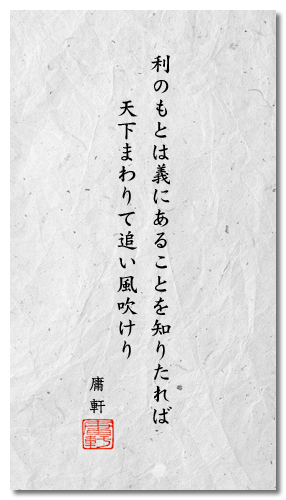 利のもとは義にあることを知りたれば
天下まわりて追い風吹けり
庸軒
庸軒